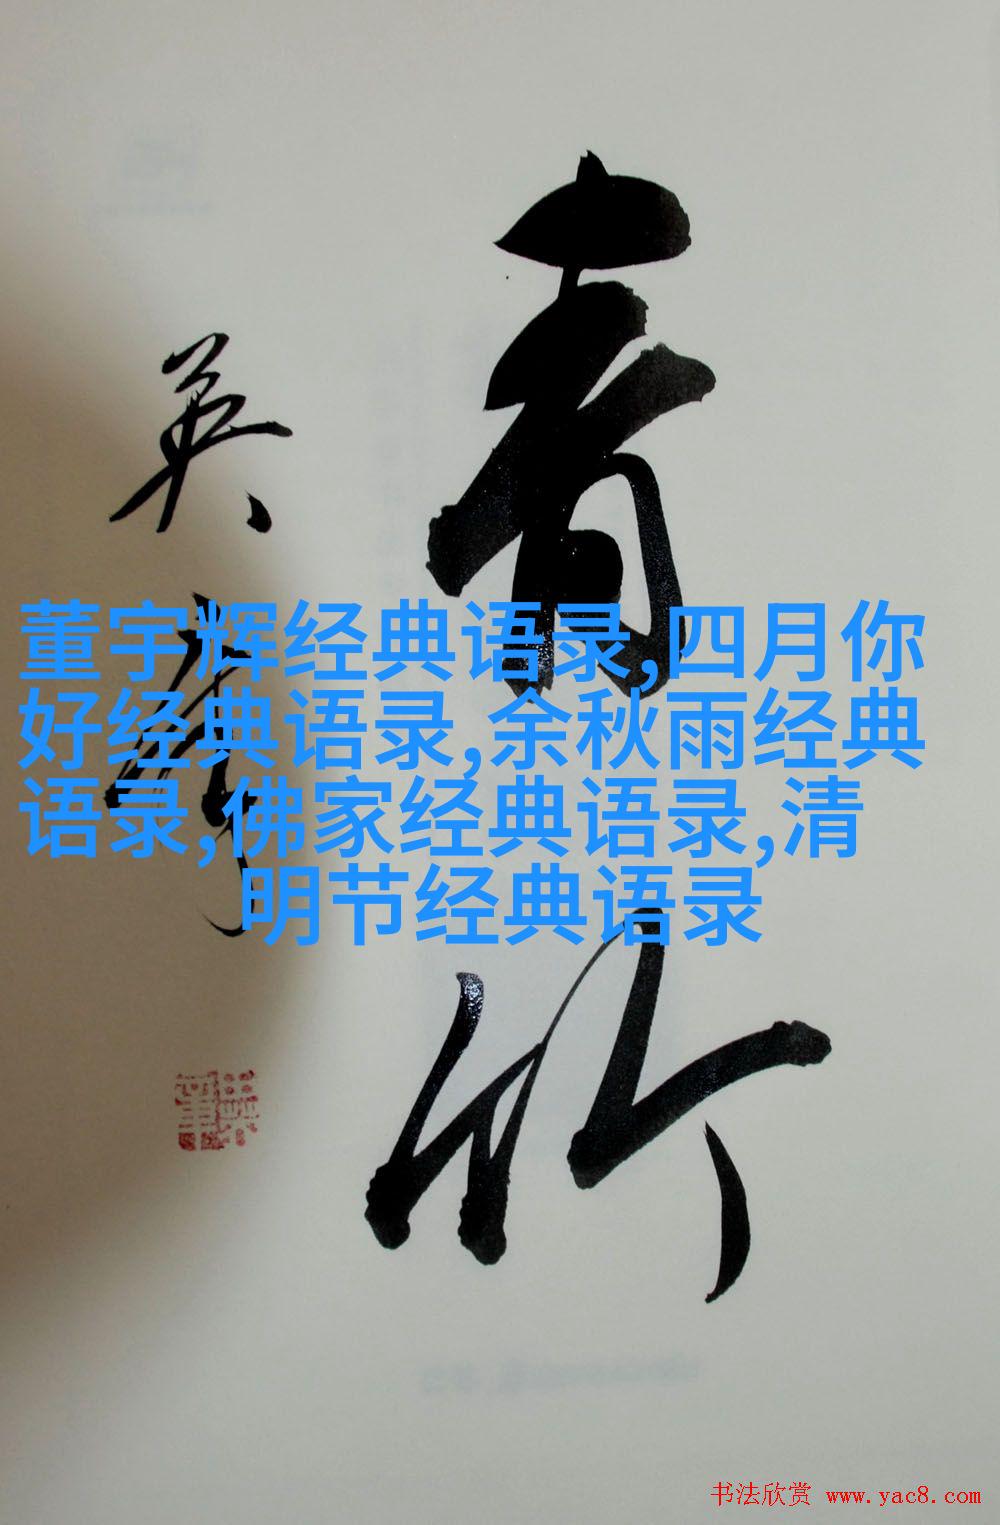 青竹
英
董宇辉经典语录,四月你
好经典语录,余秋雨经典
语录,佛家经典语录,清
明节经典语录
书法欣赏 www.yac8.com